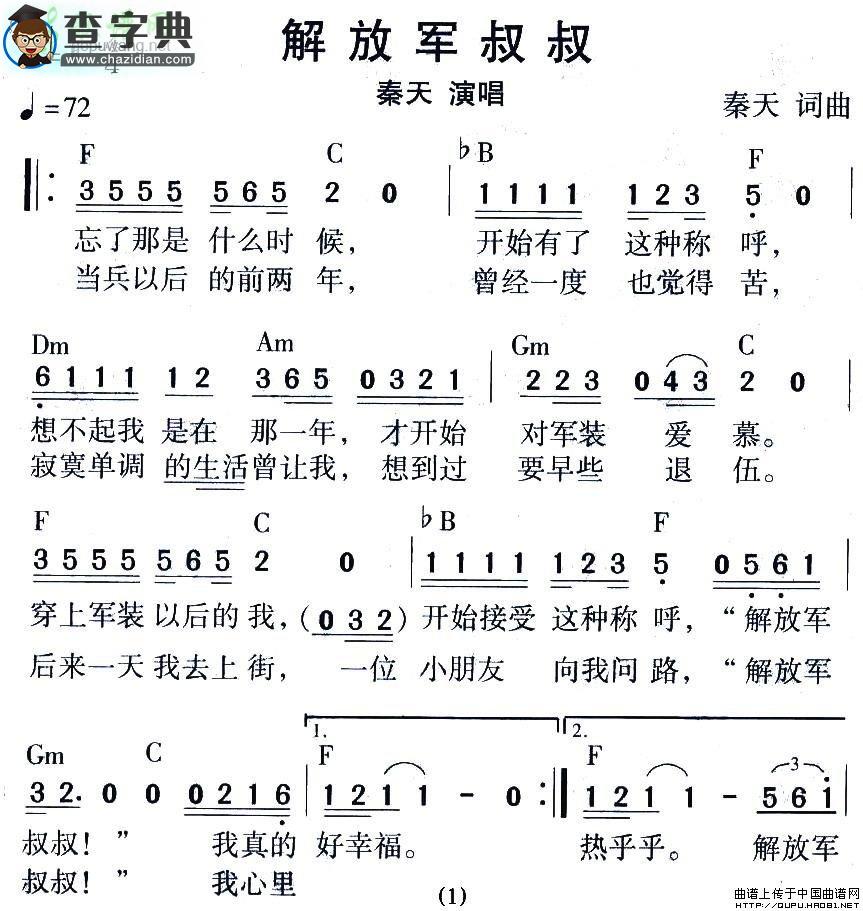 查字典
www.chazidian.com
解放军叔叔
4
♩=72
秦天 演唱
秦天 词曲
F C ♭B F
3555 565 2 0 | 1111 123 5 0
忘了那是 什么时 候， 开始有了 这种称 呼，
当兵以后 的前两 年， 曾经一度 也觉得 苦，
Dm Am Gm C
6111 12 365 0321 | 223 043 2 0
想不起我 是在 那一年， 才开始 对军装 爱 慕。
寂寞单调 的生活曾让我， 想到过 要早些 退 伍。
F C ♭B F
3555 565 2 0 | 1111 123 5 0561
穿上军装 以后的 我，（0 3 2）开始接受 这种称 呼，“解放军
后来一天 我去上 街， 一位 小朋友 向我问 路，“解放军
1. 2.
Gm C F F
32. 0 0 0216 | 1211 - 0 :| 1211 - 3 561
叔叔！” 我真的 好幸福。 热乎乎。 解放军
叔叔！” 我心里
(1)
曲谱上传于中国曲谱网
HTTP://QUPU.HAO81.NET